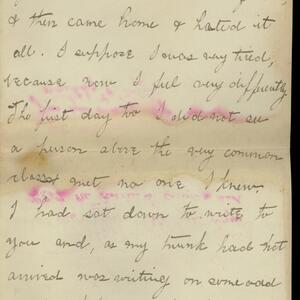 & then came home & hated it
all. I suppose I was very tired,
because now I feel very differently.
The first day too I did not see
a person above the very common
class & met no one I knew.
I had sat down to write to
you and, as my trunk had not
arrived was writing on some odd